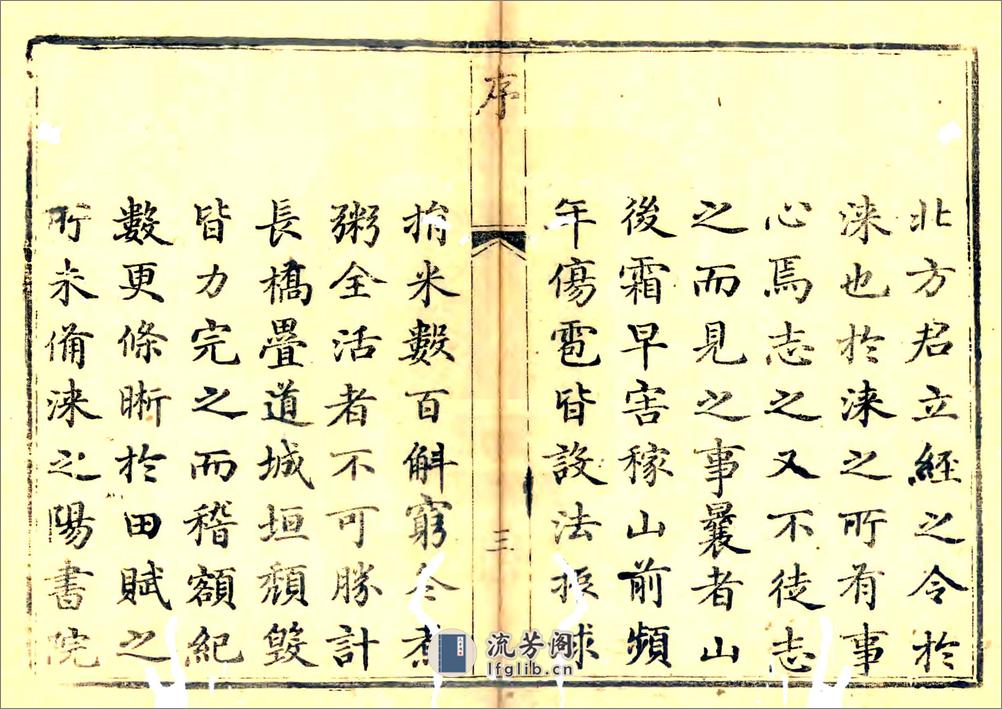 北方君立經之令於
涞也於涞之所有事
心焉志之又不徒志
之而見之事曩者山
後霜早害稼山前頻
年傷雹皆設法振救
序
三
捐米數百斛窮冬煮
粥全活者不可勝計
長橋疊道城垣頽毀
皆力完之而稽額紀
數更條晰於田賦之
所未備涞之陽書院
流芳阁
lfglib.cn